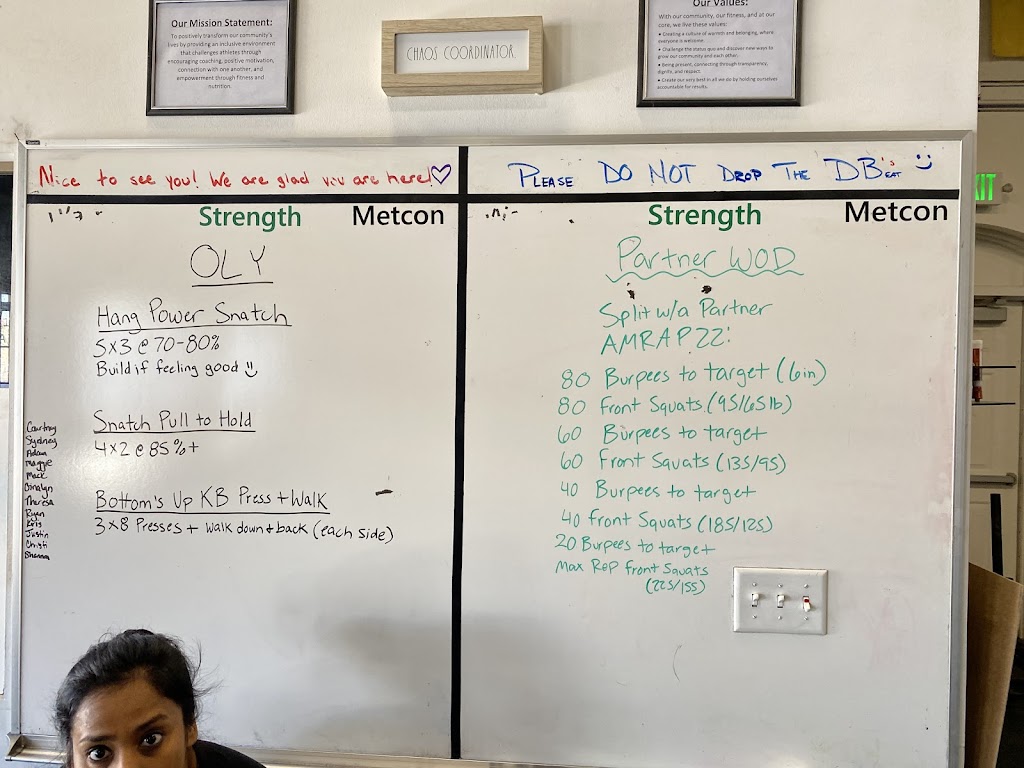 Our Mission Statement:
To positively transform our community's
lives by providing an inclusive environment
that challenges athletes through
encouraging coaching, positive motivation,
connection with one another, and
empowerment through fitness and
nutrition.
CHAOS COORDINATOR
Our Values:
With our community, our fitness, and at our
core, we live these values:
• Creating a culture of warmth and belonging, where
everyone is welcome.
• Challenge the status quo and discover new ways to
grow our community and each other.
• Being present, connecting through transparency,
dignity, and respect.
• Create our very best in all we do by holding ourselves
accountable for results.
Nice to see you! We are glad you are here!♡
Strength Metcon
OLY
Hang Power Snatch
5x3 @ 70-80%
Build if feeling good
Snatch Pull to Hold
4x2 @ 85%+
Bottom's Up KB Press + Walk
3x8 Presses + walk down + back (each side)
Courtney
Sydney
Adam
Maggie
Mack
Theresa
Ryan
Kris
Justin
Christi
PLEASE DO NOT DROP THE DB'S EAT
Strength Metcon
Partner WOD
Split w/a Partner
AMRAP 22:
80 Burpees to target (6in)
80 Front Squats (95/65lb)
60 Burpees to target
60 Front Squats (135/95)
40 Burpees to target
40 Front Squats (185/125)
20 Burpees to target
Max Rep Front Squats
(225/155)
EXIT